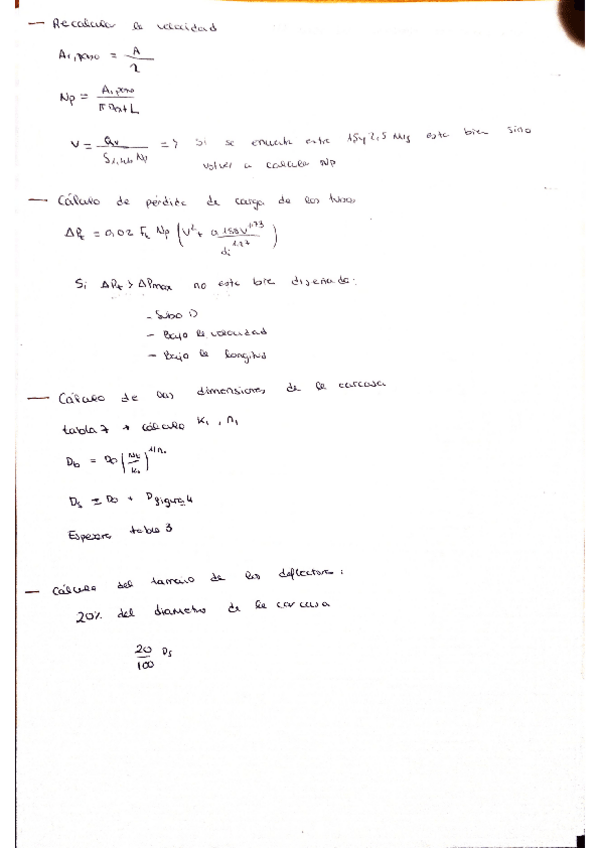 — Recalcular la velocidad
A1,paso = A / 2
Np = A1,paso / π Dext L
V = qv / S1,tub Np => Si se encuentra entre 1,5 y 2,5 m/s esta bien sino
volver a calcular Np
— Cálculo de pérdida de carga de los tubos
ΔPt = 0,02 Ft Np (V² + 0,158 V^1,73 / di^1,27)
Si ΔPt > ΔPmax no esta bien diseñado:
- Subo D
- Bajo la velocidad
- Bajo la longitud
— Cálculo de las dimensiones de la carcasa
tabla 7 → cálculo K1, n1
Db = Do (Nt / K1)^1/n1
Ds = Db + Dfigura 4
Espesor tabla 3
— Cálculo del tamaño de los deflectores:
20% del diametro de la carcasa
20/100 Ds